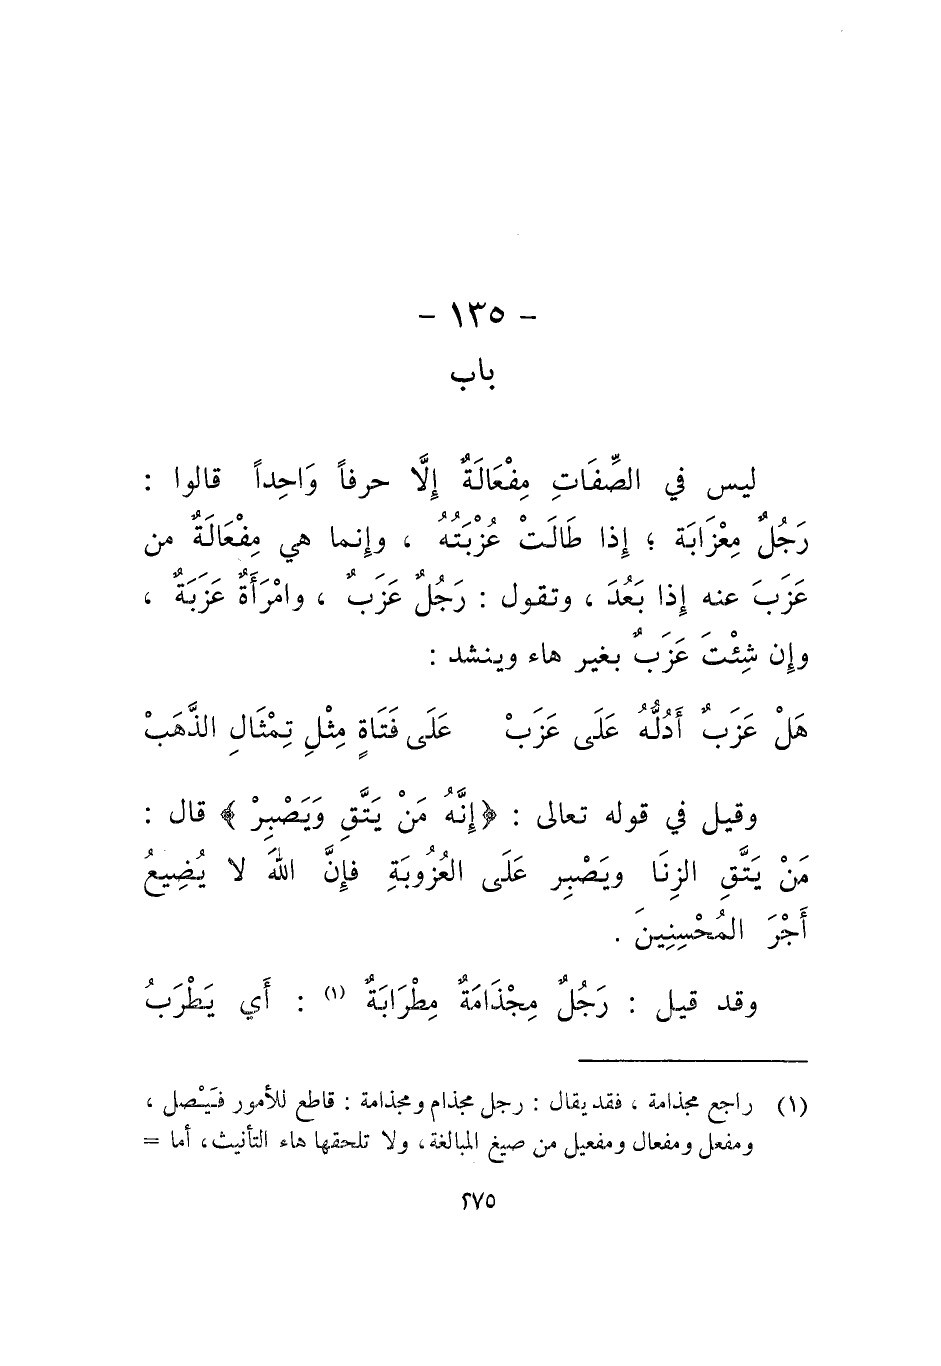 - ١٣٥ -
باب
ليس في الصِّفَاتِ مِفْعَالَةٌ إِلَّا حرفاً وَاحِداً قالوا :
رَجُلٌ مِعْزَابَة ؛ إِذا طَالَتْ عُزْبَتُهُ ، وإِنما هي مِفْعَالَةٌ من
عَزَبَ عنه إِذا بَعُدَ ، وتقول : رَجُلٌ عَزَبٌ ، وامْرَأَةٌ عَزَبَةٌ ،
وإِن شِئْتَ عَزَبٌ بغير هاء وينشد :
هَلْ عَزَبٌ أَدُلُّهُ عَلَى عَزَبْ عَلَى فَتَاةٍ مِثْلِ تِمْثَالِ الذَّهَبْ
وقيل في قوله تعالى : ﴿ إِنَّهُ مَنْ يَتَّقِ وَيَصْبِرْ ﴾ قال :
مَنْ يَتَّقِ الزِنَا ويَصْبِر عَلَى العُزُوبَةِ فإِنَّ اللهَ لا يُضِيعُ
أَجْرَ المُحْسِنِينَ .
وقد قيل : رَجُلٌ مِجْذَامَةٌ مِطْرَابَةٌ (١) : أَي يَطْرَبُ
(١) راجع مجذامة ، فقد يقال : رجل مجذام ومجذامة : قاطع للأمور فَيْصل ،
ومفعل ومفعال ومفعيل من صيغ المبالغة، ولا تلحقها هاء التأنيث، أما =
٢٧٥